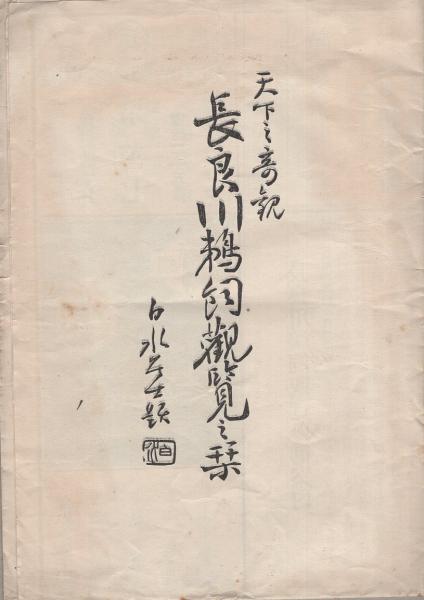 天下之奇観
長良川鵜飼觀覽之栞
白水居士題
白水